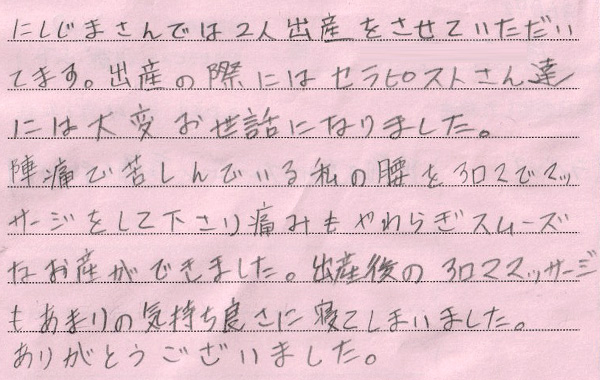 にしじまさんでは2人出産をさせていただい
てます。出産の際にはセラピストさん達
には大変お世話になりました。
陣痛で苦しんでいる私の腰をアロマでマッ
サージをして下さり痛みもやわらぎスムーズ
なお産ができました。出産後のアロママッサージ
もあまりの気持ち良さに寝てしまいました。
ありがとうございました。